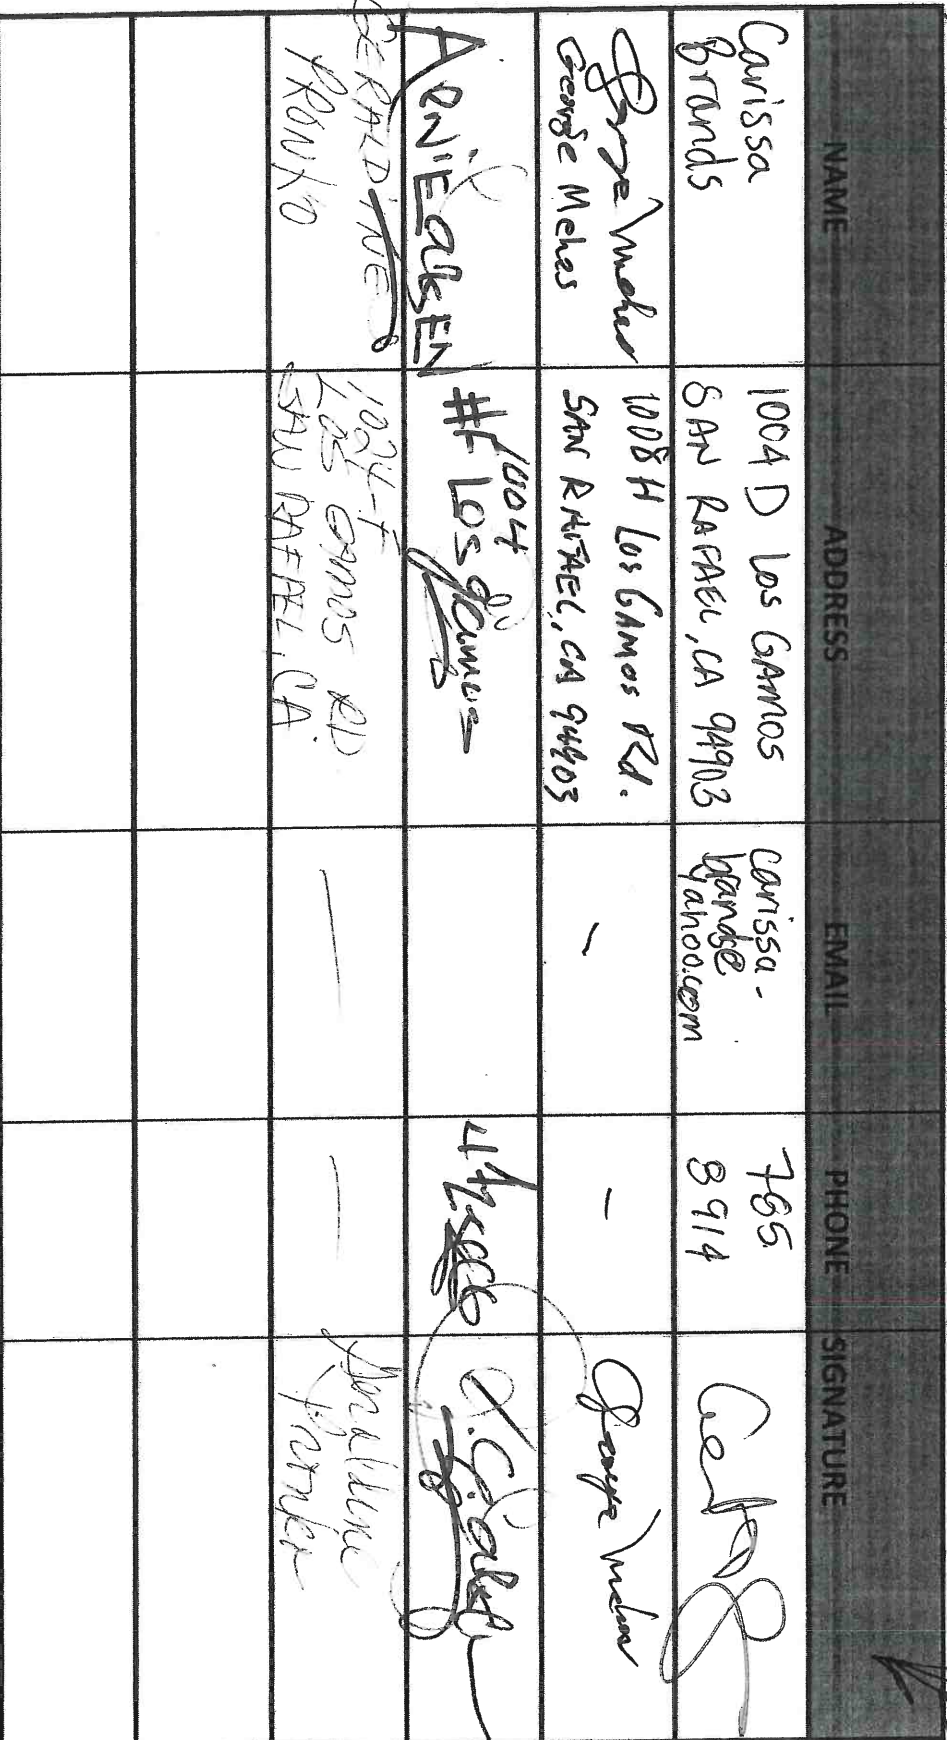 NAME ADDRESS EMAIL PHONE SIGNATURE
Carissa
Brands
1004 D Los Gamos
SAN RAFAEL, CA 94903
carissa-
brands@
yahoo.com
785
8914
George Mehes
1008 H Los Gamos Rd.
SAN RAFAEL, CA 94903
-
-
George Mehes
1004
#F Los gamos
GERALDINE
PRONKO
1024-F
LOS GAMOS RD
SAN RAFAEL, CA.
—
—
Geraldine